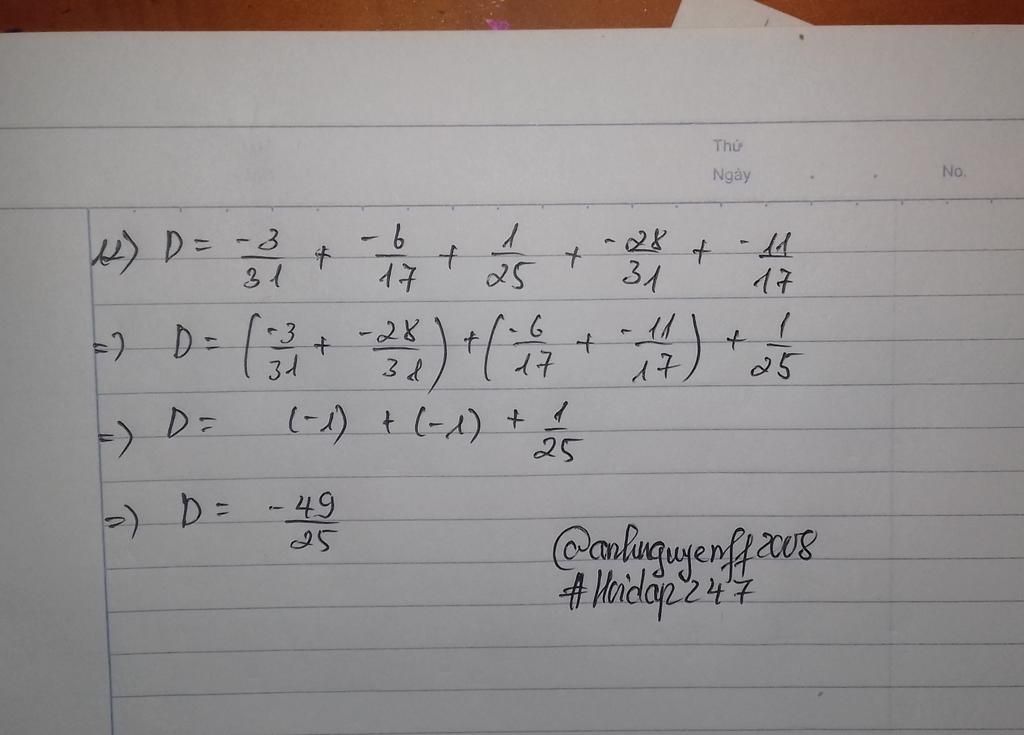 Thứ
Ngày . . No.
4) D = -3/31 + -6/17 + 1/25 + -28/31 + -11/17
=) D = (-3/31 + -28/31) + (-6/17 + -11/17) + 1/25
=) D = (-1) + (-1) + 1/25
=) D = -49/25
@anhnguyenff2008
#Hoidap247